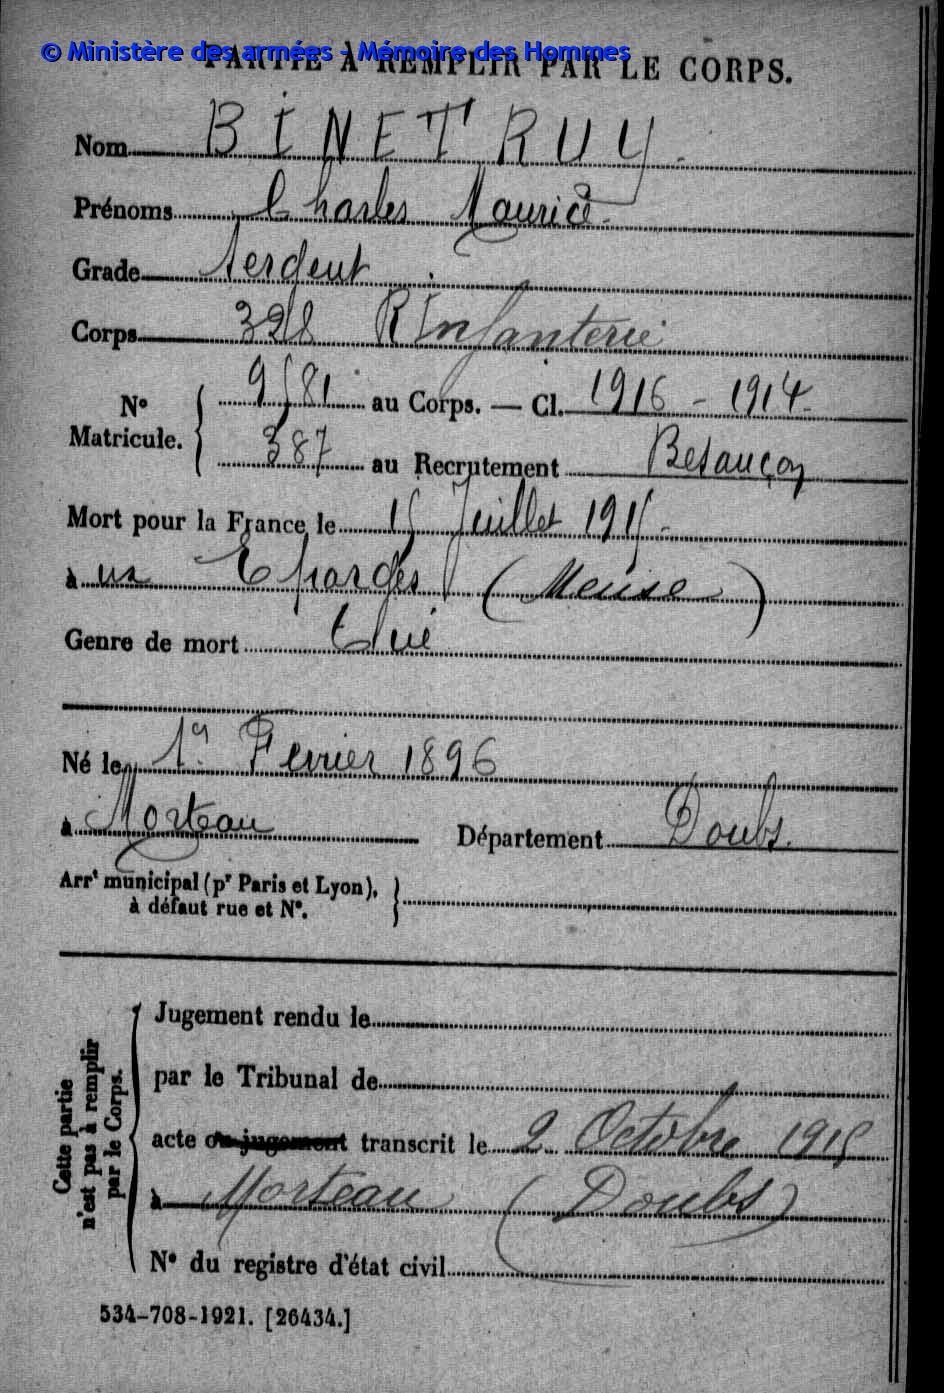 © Ministère des armées - Mémoire des Hommes
PARTIE À REMPLIR PAR LE CORPS.
Nom BINETRUY.
Prénoms Charles Maurice
Grade Sergent
Corps 328 R Infanterie
N° Matricule. 9581 au Corps. — Cl. 1916 - 1914
387 au Recrutement Besançon
Mort pour la France le 15 Juillet 1915
à Eparges (Meuse)
Genre de mort Tué
Né le 1er Fevrier 1896
à Morteau Département Doubs.
Arrt municipal (pr Paris et Lyon), à défaut rue et N°.
Cette partie n'est pas à remplir par le Corps.
Jugement rendu le
par le Tribunal de
acte ou jugement transcrit le 2 Octobre 1915
à Morteau (Doubs)
N° du registre d'état civil
534-708-1921. [26434.]